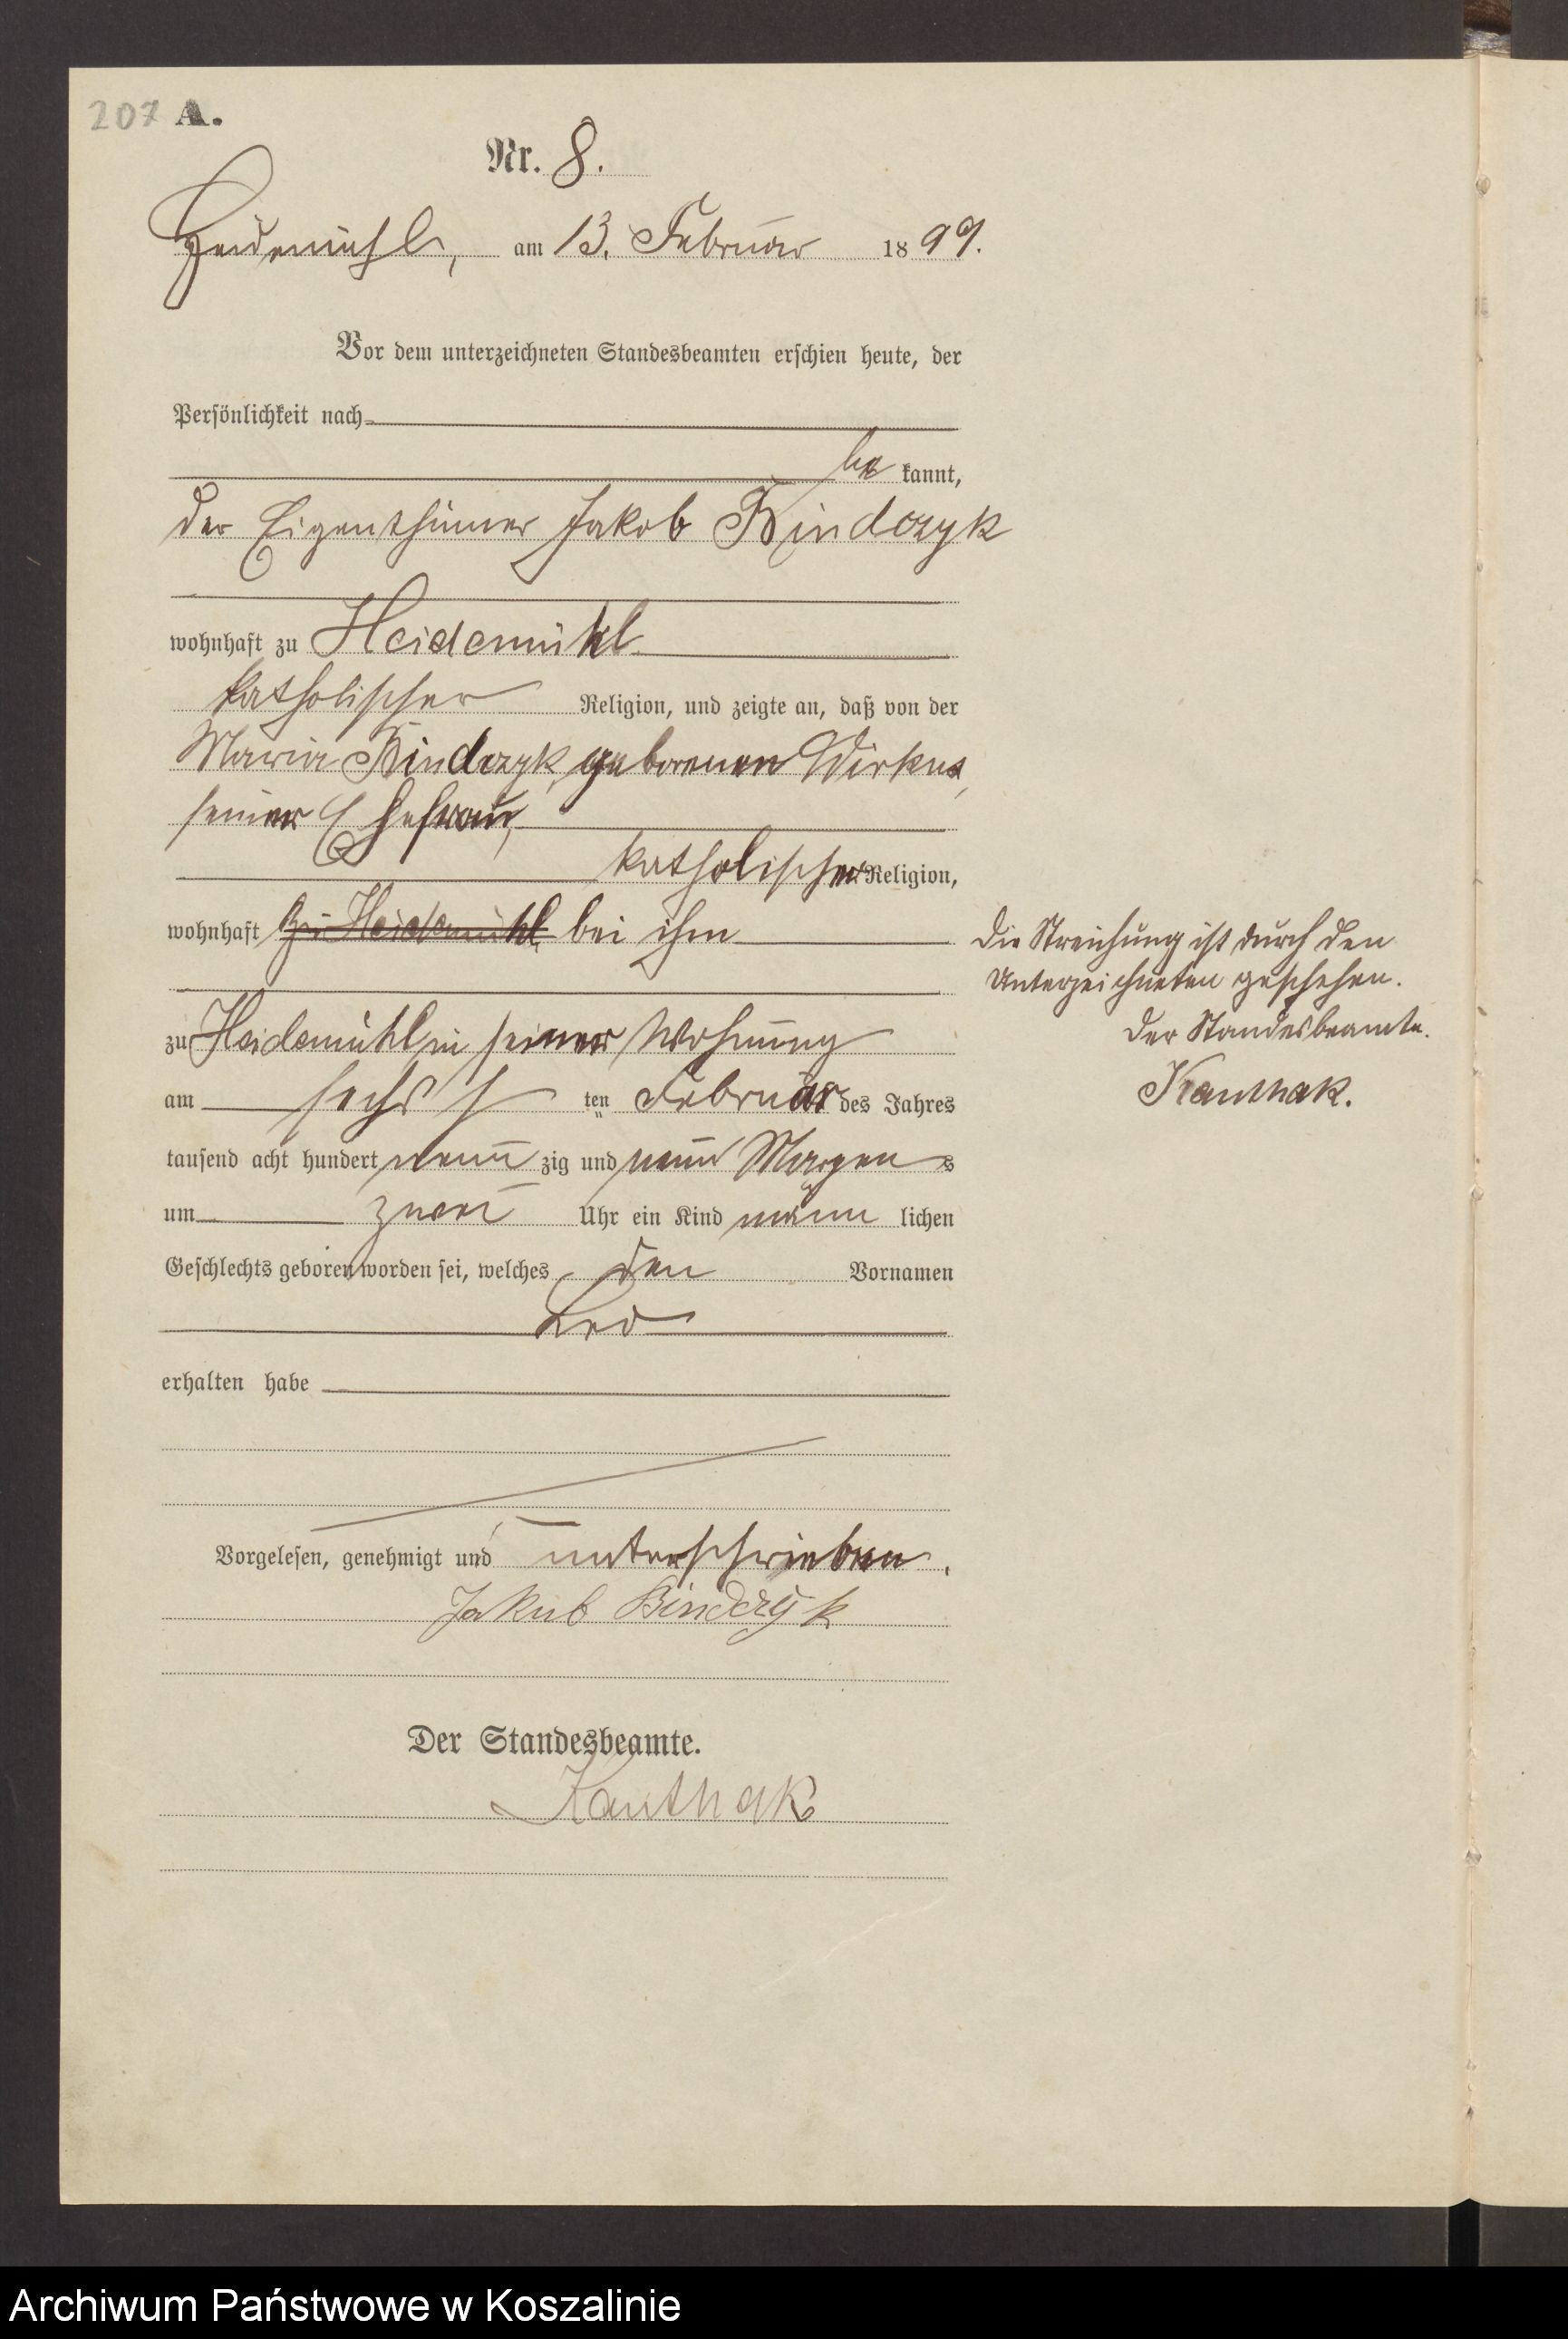 207 A.
Nr. 8.
Heidemühl, am 13. Februar 1899.
Vor dem unterzeichneten Standesbeamten erschien heute, der
Persönlichkeit nach
be kannt,
der Eigenthümer Jakob Bindczyk
wohnhaft zu Heidemühl
katholischer Religion, und zeigte an, daß von der
Maria Bindczyk geborenen Wirkus,
seiner Ehefrau,
katholischer Religion,
wohnhaft zu Heidemühl bei ihm
zu Heidemühl in seiner Wohnung
am sechs ten Februar des Jahres
tausend acht hundert neun zig und neun Morgens
um zwei Uhr ein Kind männ lichen
Geschlechts geboren worden sei, welches den Vornamen
Leo
erhalten habe
Vorgelesen, genehmigt und unterschrieben.
Jakub Bindczyk
Der Standesbeamte.
Kanthak
Die Streichung ist durch den
Unterzeichneten geschehen.
Der Standesbeamte.
Kanthak.
Archiwum Państwowe w Koszalinie